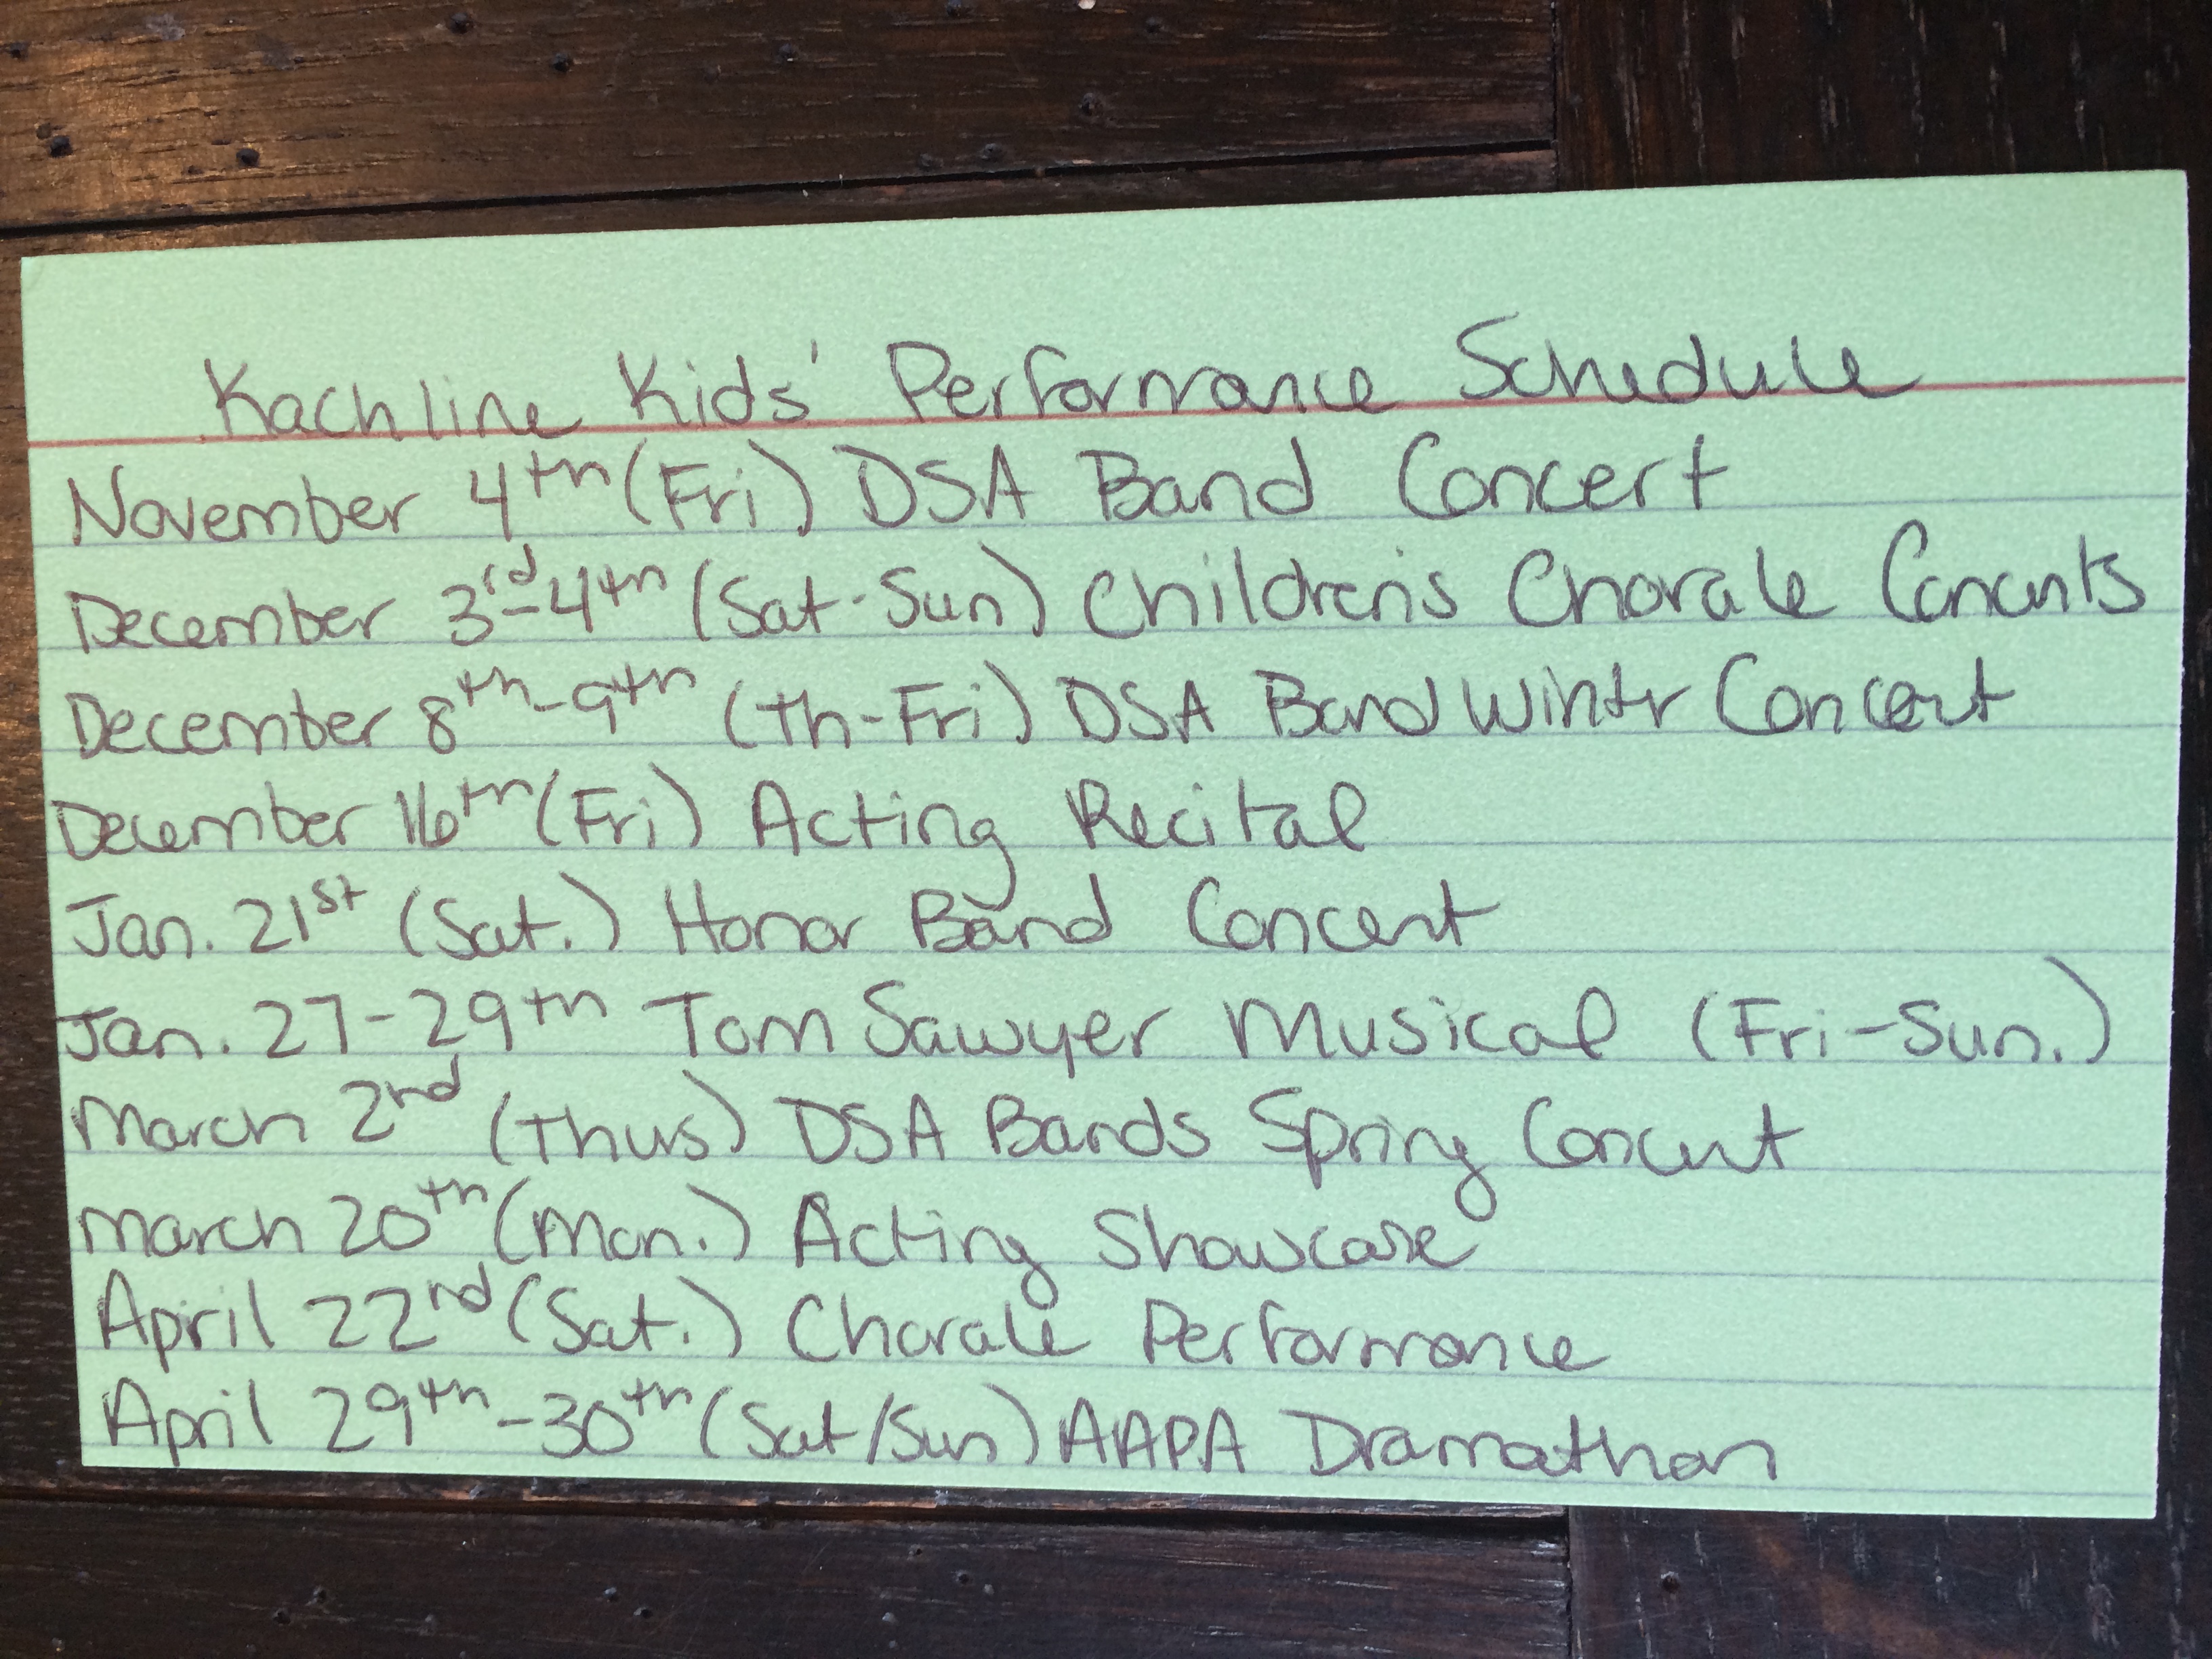 Kachline Kids' Performance Schedule
November 4th (Fri) DSA Band Concert
December 3rd-4th (Sat-Sun) Children's Chorale Concerts
December 8th-9th (Th-Fri) DSA Band Winter Concert
December 16th (Fri) Acting Recital
Jan. 21st (Sat.) Honor Band Concert
Jan. 27-29th Tom Sawyer Musical (Fri-Sun.)
March 2nd (Thurs) DSA Bands Spring Concert
March 20th (Mon.) Acting Showcase
April 22nd (Sat.) Chorale Performance
April 29th-30th (Sat/Sun) AAPA Dramathon